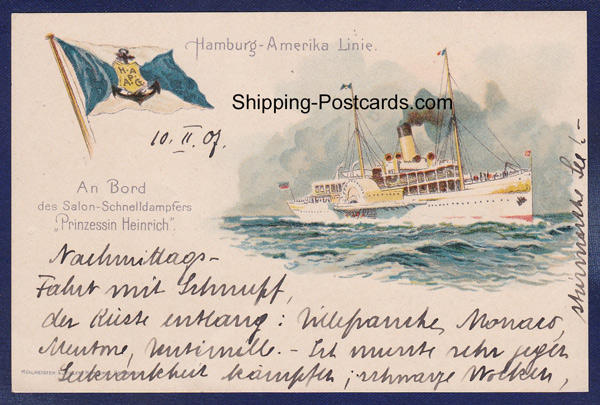 Hamburg-Amerika Linie.
H.A.
A.P.G.
Shipping-Postcards.com
10. II. 07.
An Bord
des Salon-Schnelldampfers
„Prinzessin Heinrich".
Nachmittags-
Fahrt mit Schnupf,
der Küste entlang: Villefranche, Monaco,
Mentone, Ventimille. - Ich musste sehr gegen
Seekrankheit kämpfen; schwarze Wolken,
stürmische See! -